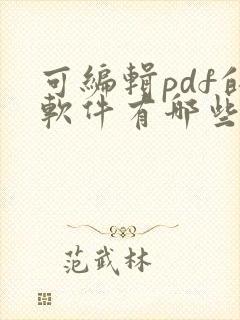 可編輯pdf的
軟件有哪些
范武林